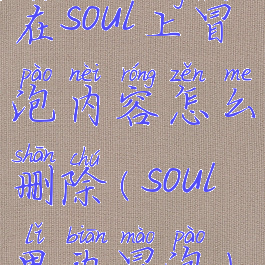 在soul上冒
pào nèi róng zěn me
泡内容怎么
shān chú
删除(soul
lǐ biān mào pào
里边冒泡)